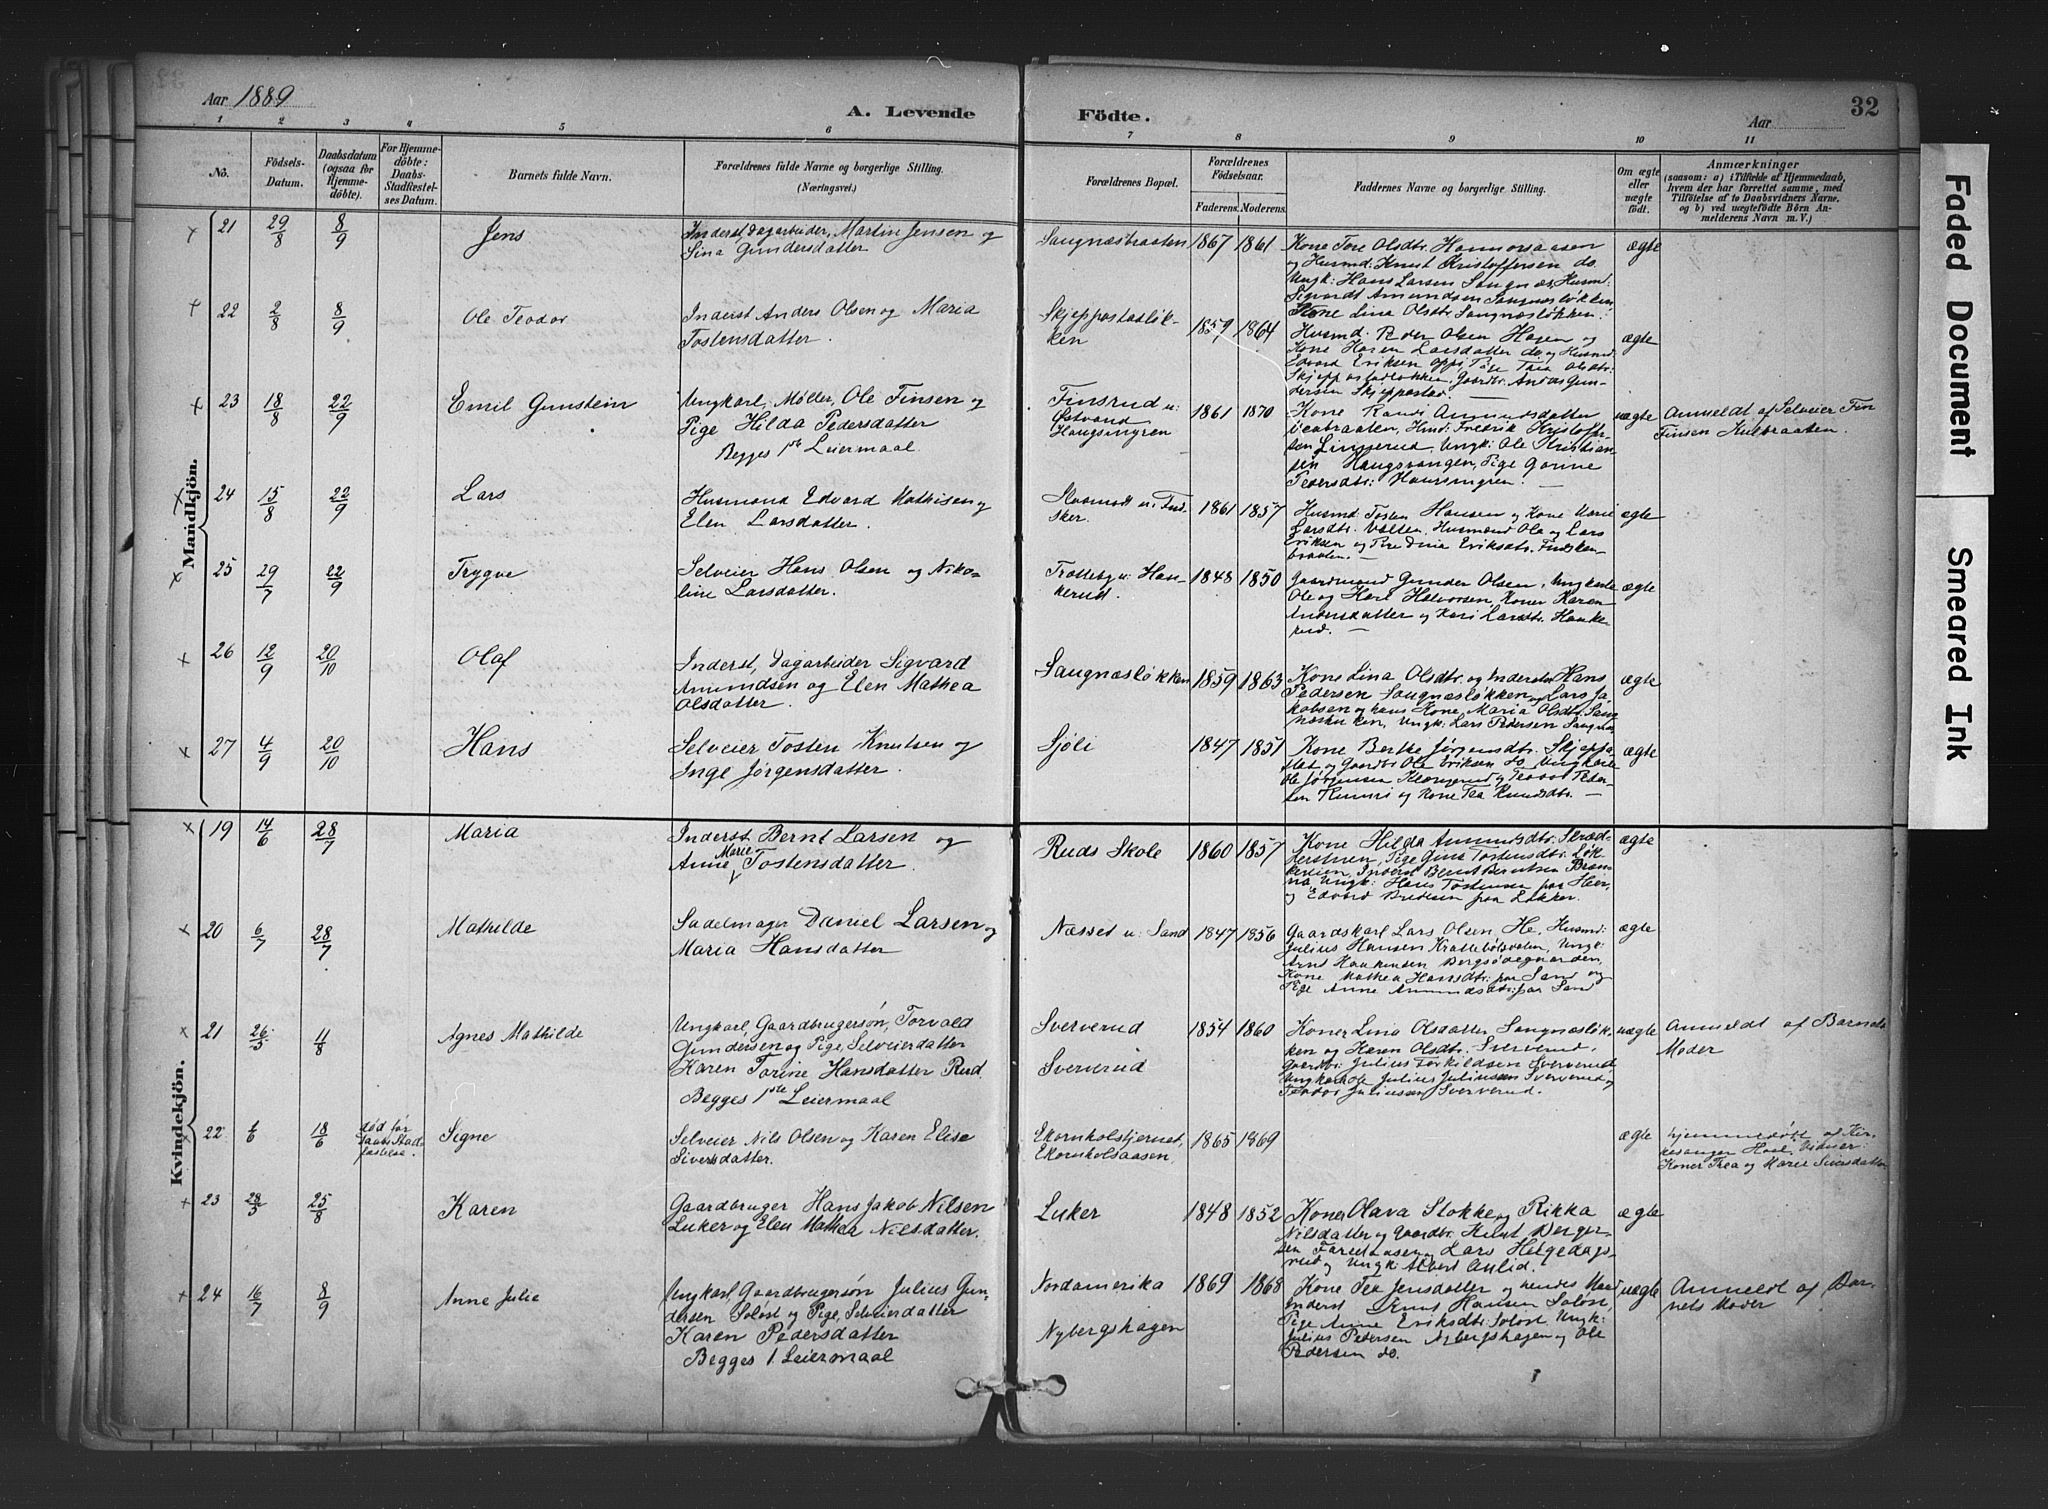 Aar 1889
A. Levende
Födte.
Aar
32
1 2 3 4 5 6 7 8 9 10 11
No.
Födsels-
Datum.
Daabsdatum
(ogsaa for
Hjemme-
döbte).
For Hjemme-
döbte:
Daabs-
Stadfæstel-
ses Datum.
Barnets fulde Navn.
Forældrenes fulde Navne og borgerlige Stilling.
(Næringsvei.)
Forældrenes Bopæl.
Forældrenes
Födselsaar.
Faderens. Moderens.
Faddernes Navne og borgerlige Stilling.
Om ægte
eller
uægte
födt.
Anmærkninger
(saasom: a) i Tilfælde af Hjemmedaab,
hvem der har forrettet samme, med
Tilföielse af to Daabsvidners Navne.
og b) ved uægtefödte Börn An-
melderens Navn m. V.)
Mandkjön.
21 29/8 8/9 Jens
Inderst Dagarbeider, Martin Jensen og
Sina Gundersdatter
Saugnæsbraaten 1867 1861
Kone Tore Olsdtr.
og Husmd: Knut Kristoffersen do.
Ungk: Hans Larsen Saugnæs, Husmd:
Sigvardt Amundsen Saugnæsløkken,
Kone Lina Olsdtr. Saugnæsløkken.
ægte
22 2/8 8/9 Ole Teodor
Inderst Anders Olsen og Maria
Tostensdatter.
Skjeppestadløk-
ken
1859 1864
Husmd. Peder Olsen Hagen og
Kone Karen Larsdatter do. og Husmd.
Edvard Eriksen Pige Olsdtr.
Skjeppestadløkken, Gaardbr. Gun-
dersen Skjeppestad.
ægte
23 18/8 22/9 Emil Gunstein
Ungkarl, Møller, Ole Finsen og
Pige Hilda Pedersdatter
Begges 1ste Leiermaal
Finsrud u:
Østvand
Haugsengren
1861 1870
Kone Randi Amundsdatter
Husmd: Fredrik Kristoffer-
sen Lingerud, Ungk: Ole Kristian-
sen Haugsvangen, Pige Gonne
Pedersdtr:
uægte
Anmeldt af Selveier Fin
Finsen Kulbraaten.
24 15/8 22/9 Lars
Husmand Edvard Mathisen og
Elen Larsdatter.
1861 1857
Husmd: Tosten Hansen og Kone Marie
Larsdtr. Husmænd Ola og Lars
Eriksen og Pige Dina Eriksdtr.
ægte
25 29/7 22/9 Trygve
Selveier Hans Olsen og Niko-
line Larsdatter.
Trotteby u: Han-
kerud.
1848 1850
Gaardmand Gunder Olsen, Ungkarle
Ole og Karl Halvorsen, Koner Karen
Andersdatter og Kari Larsdtr.
ægte
26 12/9 20/10 Olaf
Inderst, Dagarbeider Sigvard
Amundsen og Elen Mathea
Olsdatter.
Saugnæsløkken 1859 1863
Kone Lina Olsdtr. og Inderster Hans
Pedersen Saugnæsløkken, og Lars Ja-
kobsen og hans Kone Maria Olsdtr. Saug-
Ungk: Lars Pedersen
ægte
27 4/9 20/10 Hans
Selveier Tosten Knutsen og
Inge Jørgensdatter.
Sjøli 1847 1851
Kone Berthe Jørgensdtr. Skjeppe-
stad og Gaardbr. Ole Eriksen do, Ungkarle
Ole Jørgensen og Teodor
og Kone Tea Knudsdtr.
ægte
Kvindekjön.
19 14/6 28/7 Maria
Inderst Bernt Larsen og
Anne Marie Tostensdatter.
Ruds Skole 1860 1857
Kone Hilda Amundsdtr.
Pige Gina Tostensdtr.
Inderst Bernt Berntsen
Ungk: Hans Tostensen paa Heier,
og Edvard paa Løkker.
ægte
20 6/7 28/7 Mathilde
Sadelmager Daniel Larsen og
Maria Hansdatter
Næsset u: Sand 1847 1856
Gaardskarl Lars Olsen, He, Husmd:
Julius Hansen Ungk:
Haakensen Bergsødegaarden,
Kone Mathea Hansdtr: paa Sand og
Pige Anne Amundsdtr: paa Sand
ægte
21 26/5 11/8 Agnes Mathilde
Ungkarl, Gaardbrugersøn, Torvald
Gundersen og Pige, Selveierdatter
Karen Torine Hansdatter Rud.
Begges 1ste Leiermaal
Sververud
Sververud
1854 1860
Koner Lina Olsdatter, Saugnæsløk-
ken og Karen Olsdtr. Sververud,
Gaardbr: Julius Torkildsen Sververud
Ungkarle Julius Juliussen Sververud og
Teodor Juliussen Sververud.
uægte
Anmeldt af Barnets
Moder
22 18/6 død før
Daabs Stad-
fæstelse.
Signe
Selveier Nils Olsen og Karen Elise
Siversdatter.
Ekornholstjernet,
Ekornholsaasen
1865 1869
ægte
hjemmedøbt af Kir-
kesanger Hoel, Vidner:
Koner Thea og Marie Siversdatter
23 28/5 25/8 Karen
Gaardbruger Hans Jakob Nilsen
Luker og Elen Mathea Nilsdatter.
Luker 1848 1852
Koner Olava Stokke og Rikka
Nilsdatter og Gaardbr. Knut Berger-
sen og Lars Helgedags-
rud og Ungk: Albert Aulid.
ægte
24 16/7 8/9 Anne Julie
Ungkarl, Gaardbrugersøn Julius Gun-
dersen Soløst og Pige, Selveierdatter
Karen Pedersdatter
Begges 1. Leiermaal
Nordamerika
Nybergshagen
1869 1868
Kone Tea Jensdatter og hendes Mand
Inderst Hansen Soløst,
Pige Anne Eriksdtr: Soløst, Ungk:
Julius Petersen Nybergshagen og Ole
Pedersen do.
uægte
Anmeldt af Bar-
nets Moder
Faded Document
Smeared Ink